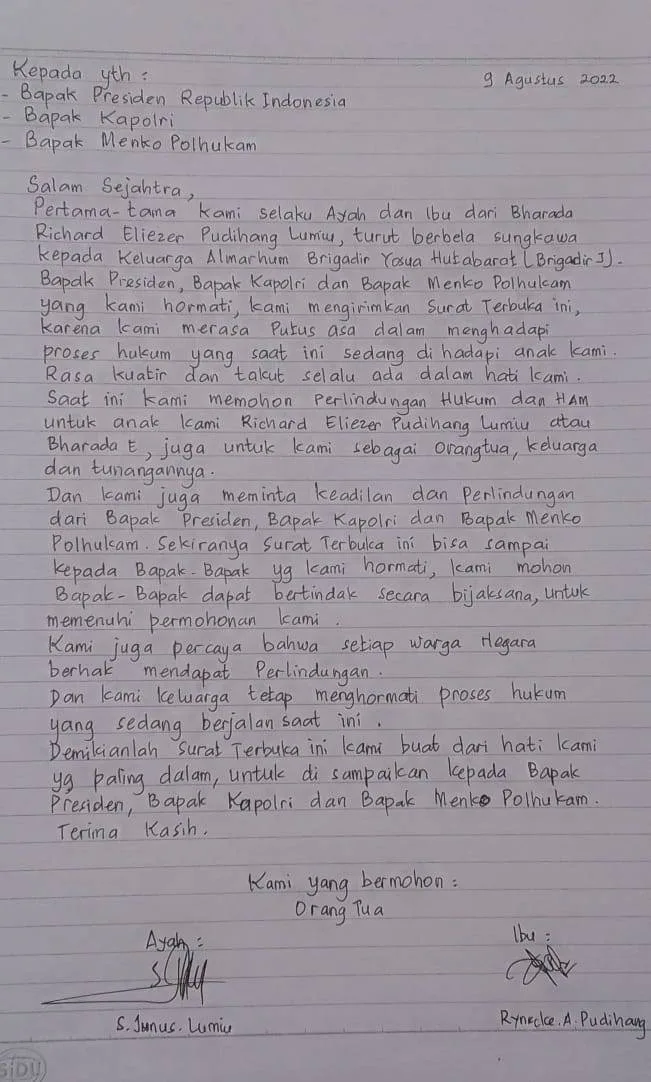 Kepada yth :
9 Agustus 2022
- Bapak Presiden Republik Indonesia
- Bapak Kapolri
- Bapak Menko Polhukam
Salam Sejahtra,
Pertama-tama kami selaku Ayah dan Ibu dari Bharada
Richard Eliezer Pudihang Lumiu, turut berbela sungkawa
kepada Keluarga Almarhum Brigadir Yosua Hutabarat (Brigadir J).
Bapak Presiden, Bapak Kapolri dan Bapak Menko Polhukam
yang kami hormati, kami mengirimkan Surat Terbuka ini,
karena kami merasa Putus asa dalam menghadapi
proses hukum yang saat ini sedang di hadapi anak kami.
Rasa kuatir dan takut selalu ada dalam hati kami.
Saat ini kami memohon Perlindungan Hukum dan HAM
untuk anak kami Richard Eliezer Pudihang Lumiu atau
Bharada E, juga untuk kami sebagai Orangtua, keluarga
dan tunangannya.
Dan kami juga meminta keadilan dan Perlindungan
dari Bapak Presiden, Bapak Kapolri dan Bapak Menko
Polhukam. Sekiranya Surat Terbuka ini bisa sampai
kepada Bapak-Bapak yg kami hormati, kami mohon
Bapak-Bapak dapat bertindak secara bijaksana, untuk
memenuhi permohonan kami.
Kami juga percaya bahwa setiap warga Negara
berhak mendapat Perlindungan.
Dan kami keluarga tetap menghormati proses hukum
yang sedang berjalan saat ini.
Demikianlah Surat Terbuka ini kami buat dari hati kami
yg paling dalam, untuk di sampaikan kepada Bapak
Presiden, Bapak Kapolri dan Bapak Menko Polhukam.
Terima Kasih.
Kami yang bermohon :
Orang Tua
Ayah :
Ibu :
S. Junus. Lumiu
Rynecke. A. Pudihang
SIDU